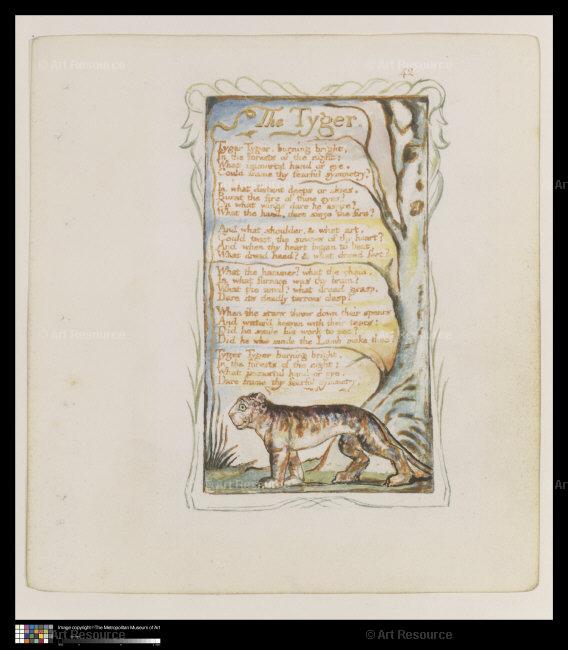 © Art Resource
© Art Resource
42
The Tyger.
Tyger Tyger. burning bright,
In the forests of the night:
What immortal hand or eye.
Could frame thy fearful symmetry?
In what distant deeps or skies.
Burnt the fire of thine eyes?
On what wings dare he aspire?
What the hand, dare sieze the fire?
And what shoulder, & what art,
Could twist the sinews of thy heart?
And when thy heart began to beat,
What dread hand? & what dread feet?
What the hammer? what the chain,
In what furnace was thy brain?
What the anvil? what dread grasp,
Dare its deadly terrors clasp?
When the stars threw down their spears
And water'd heaven with their tears:
Did he smile his work to see?
Did he who made the Lamb make thee?
Tyger Tyger burning bright,
In the forests of the night:
What immortal hand or eye,
Dare frame thy fearful symmetry?
© Art Resource
© Art Resource
Image copyright ©The Metropolitan Museum of Art
Art Resource
© Art Resource